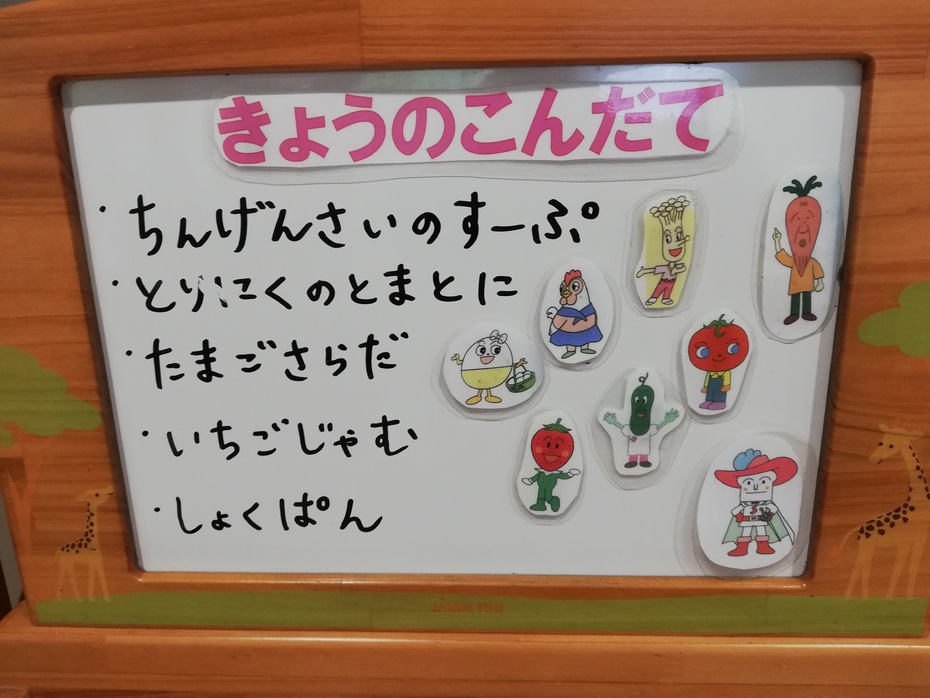 きょうのこんだて
・ちんげんさいのすーぷ
・とりにくのとまとに
・たまごさらだ
・いちごじゃむ
・しょくぱん
JAKUETSU